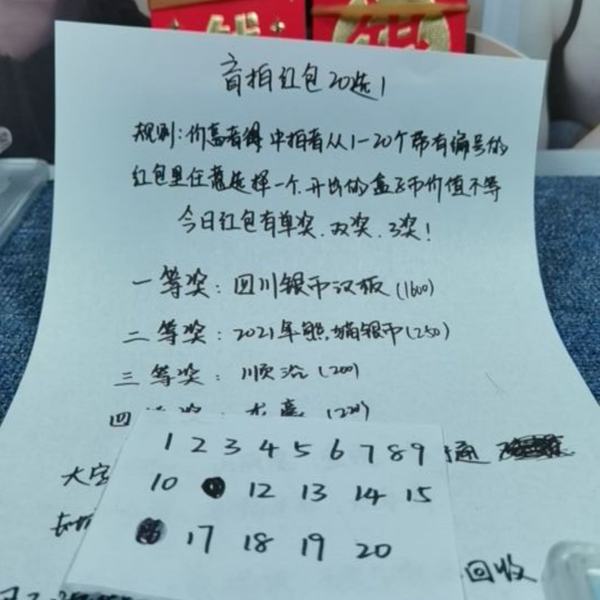 盲拍红包20选1
规则:价高者得 中拍者从1-20个带有编号的
红包里任意选择一个,开出的盒子币价值不等
今日红包有单奖、双奖、3奖!
一等奖:四川银币汉版(1600)
二等奖:2021年熊猫银币(250)
三等奖:顺治(200)
四 (220)
1 2 3 4 5 6 7 8 9
大字 通
10 12 13 14 15
17 18 19 20
回收